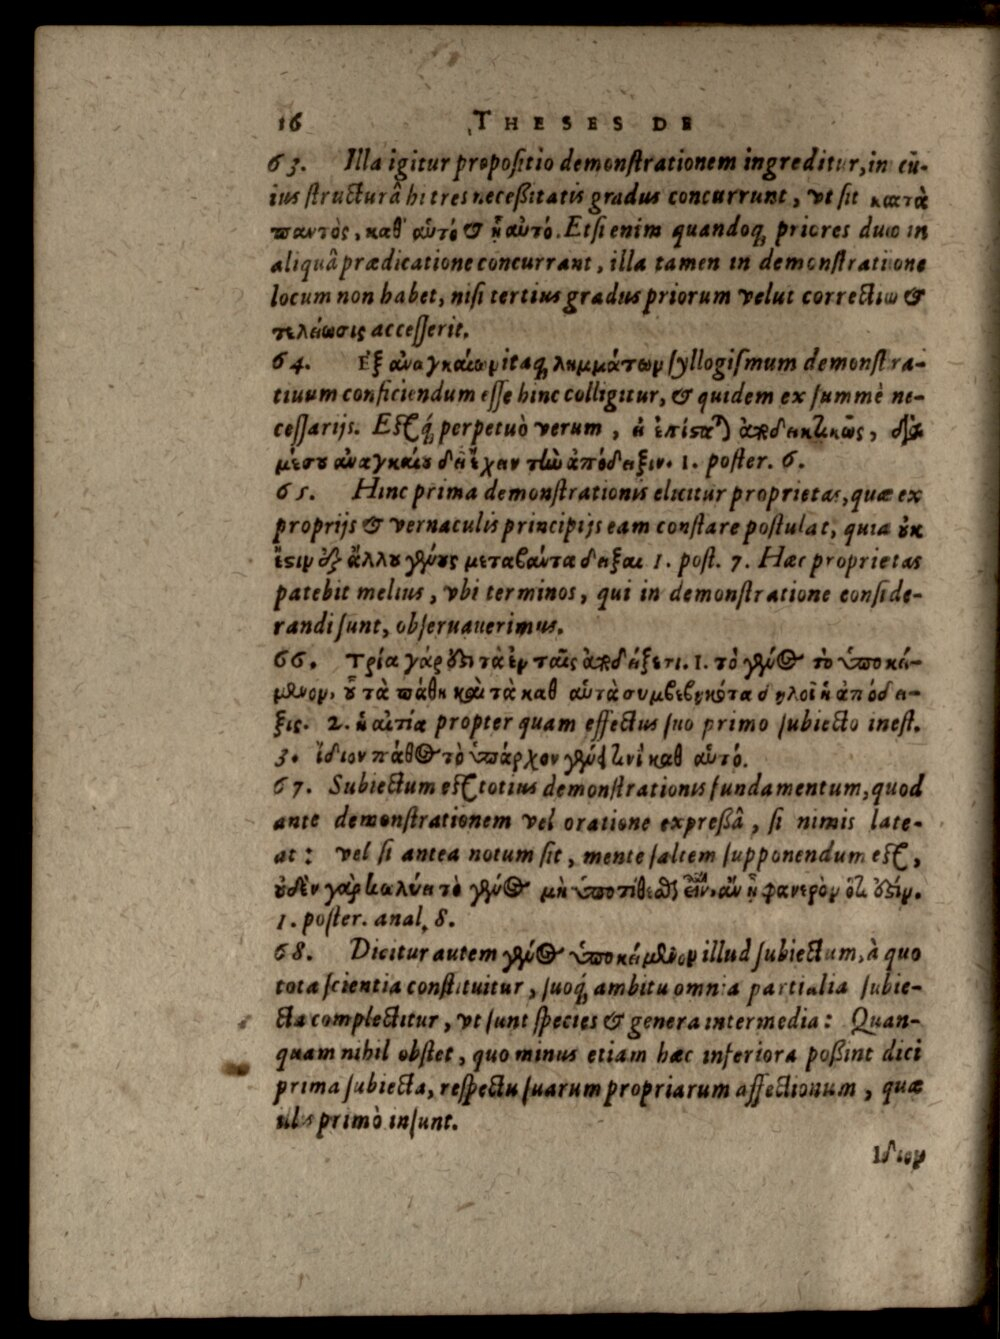 16 THESES DE
63. Illa igitur propositio demonstrationem ingreditur, in cũ-
ius structurâ hi tres necessitatis gradus concurrunt, vt sit κατὰ
παντὸς, καθ' αὑτό & ᾗ αὐτό. Etsi enim quandoq; priores duæ in
aliquâ prædicatione concurrant, illa tamen in demonstratione
locum non habet, nisi tertius gradus priorum velut correctio &
τελείωσις accesserit.
64. Ἐξ ἀναγκαίων itaq; λημμάτων syllogismum demonstra-
tiuum conficiendum esse hinc colligitur, & quidem ex summè ne-
cessarijs. Estq́; perpetuò verum, εἰ ἐπίσταται ἀποδεικτικῶς, διὰ
μέσου ἀναγκαίου δεῖ ἔχειν τὴν ἀπόδειξιν. 1. poster. 6.
65. Hinc prima demonstrationis elicitur proprietas, quæ ex
proprijs & vernaculis principijs eam constare postulat, quia οὐκ
ἔστιν ἐξ ἄλλου γένους μεταβάντα δεῖξαι 1. post. 7. Hæc proprietas
patebit melius, vbi terminos, qui in demonstratione conside-
randi sunt, obseruauerimus.
66. Τρία γάρ ἐστι τὰ ἐν ταῖς ἀποδείξεσι. 1. τὸ γένος τὸ ὑποκεί-
μενον, οὗ τὰ πάθη καὶ τὰ καθ' αὑτὰ συμβεβηκότα δηλοῖ ἡ ἀπόδει-
ξις. 2. ἡ αἰτία propter quam effectus suo primo subiecto inest.
3. ἴδιον πάθος τὸ ὑπάρχον γένει τινὶ καθ' αὑτό.
67. Subiectum est totius demonstrationis fundamentum, quod
ante demonstrationem vel oratione expressâ, si nimis late-
at: vel si antea notum sit, mente saltem supponendum est,
οὐδὲν γὰρ κωλύει τὸ γένος μὴ ὑποτίθεσθαι εἶναι, ἂν ᾖ φανερὸν ὅτι ἐστίν.
1. poster. anal. 8.
68. Dicitur autem γένος ὑποκείμενον illud subiectum, à quo
tota scientia constituitur, suoq́; ambitu omnia partialia subie-
cta complectitur, vt sunt species & genera intermedia: Quan-
quam nihil obstet, quo minus etiam hæc inferiora possint dici
prima subiecta, respectu suarum propriarum affectionum, quæ
illis primò insunt.
Ιδιον